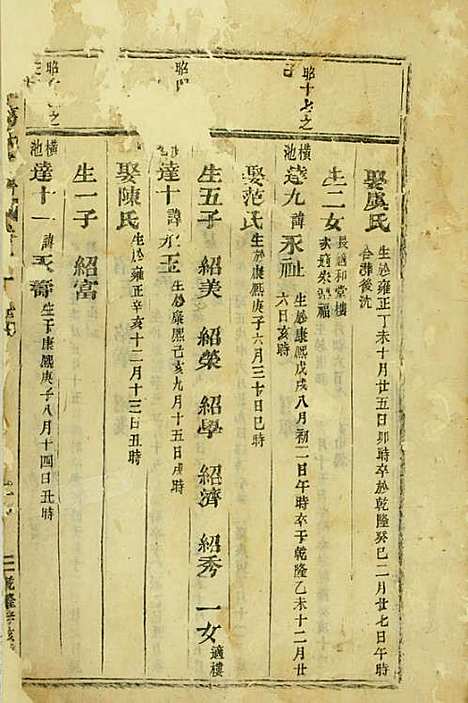 昭十七之
娶虞氏 生於雍正丁未十月廿五日卯時卒於乾隆癸巳二月廿七日午時
合葬後沈
生二女 長適和堂樓
次適朱 福
橫池 達九 諱永祉 生於康熙戊戌八月初二日午時卒于乾隆乙未十二月廿
六日亥時
娶范氏 生於康熙庚子六月三十日巳時
生五子 紹美 紹榮 紹學 紹濟 紹秀 一女 適樓
昭
達十 諱永玉 生於康熙己亥九月十五日戌時
娶陳氏 生於雍正辛亥十二月十三日丑時
生一子 紹富
昭 之
橫池 達十一 諱天壽 生于康熙庚子八月十四日丑時
乾隆